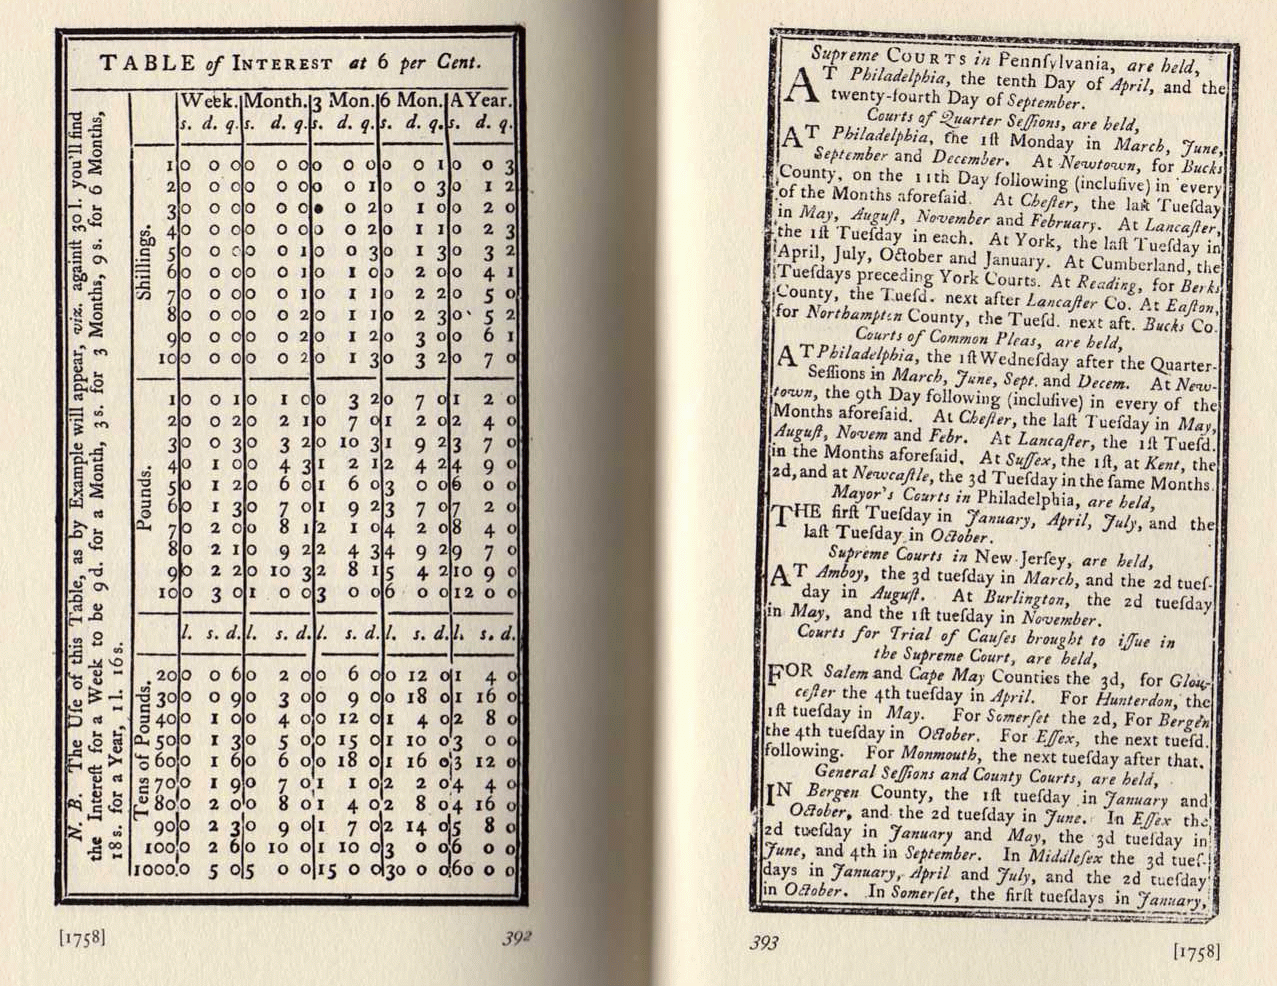 TABLE of INTEREST at 6 per Cent.
Week. Month. 3 Mon. 6 Mon. A Year.
s. d. q. s. d. q. s. d. q. s. d. q. s. d. q.
Shillings.
1 0 0 0 0 0 0 0 0 0 0 0 1 0 0 3
2 0 0 0 0 0 0 0 0 1 0 0 3 0 1 2
3 0 0 0 0 0 0 0 2 0 1 0 0 2 0
4 0 0 0 0 0 0 0 0 2 0 1 1 0 2 3
5 0 0 0 0 0 1 0 0 3 0 1 3 0 3 2
6 0 0 0 0 0 1 0 1 0 0 2 0 0 4 1
7 0 0 0 0 0 1 0 1 1 0 2 2 0 5 0
8 0 0 0 0 0 2 0 1 1 0 2 3 0 5 2
9 0 0 0 0 0 2 0 1 2 0 3 0 0 6 1
10 0 0 0 0 0 2 0 1 3 0 3 2 0 7 0
Pounds.
1 0 0 1 0 1 0 0 3 2 0 7 0 1 2 0
2 0 0 2 0 2 1 0 7 0 1 2 0 2 4 0
3 0 0 3 0 3 2 0 10 3 1 9 2 3 7 0
4 0 1 0 0 4 3 1 2 1 2 4 2 4 9 0
5 0 1 2 0 6 0 1 6 0 3 0 0 6 0 0
6 0 1 3 0 7 0 1 9 2 3 7 0 7 2 0
7 0 2 0 0 8 1 2 1 0 4 2 0 8 4 0
8 0 2 1 0 9 2 2 4 3 4 9 2 9 7 0
9 0 2 2 0 10 3 2 8 1 5 4 2 10 9 0
10 0 3 0 1 0 0 3 0 0 6 0 0 12 0 0
l. s. d. l. s. d. l. s. d. l. s. d. l. s. d.
Tens of Pounds.
20 0 0 6 0 2 0 0 6 0 0 12 0 1 4 0
30 0 0 9 0 3 0 0 9 0 0 18 0 1 16 0
40 0 1 0 0 4 0 0 12 0 1 4 0 2 8 0
50 0 1 3 0 5 0 0 15 0 1 10 0 3 0 0
60 0 1 6 0 6 0 0 18 0 1 16 0 3 12 0
70 0 1 9 0 7 0 1 1 0 2 2 0 4 4 0
80 0 2 0 0 8 0 1 4 0 2 8 0 4 16 0
90 0 2 3 0 9 0 1 7 0 2 14 0 5 8 0
100 0 2 6 0 10 0 1 10 0 3 0 0 6 0 0
1000 0 5 0 5 0 0 15 0 0 30 0 0 60 0 0
N. B. The Uſe of this Table, as by Example will appear, viz. againſt 30 l. you'll find
the Intereſt for a Week to be 9 d. for a Month, 3 s. for 3 Months, 9 s. for 6 Months,
18 s. for a Year, 1 l. 16 s.
[1758]
392
Supreme COURTS in Pennſylvania, are held,
AT Philadelphia, the tenth Day of April, and the
twenty-fourth Day of September.
Courts of Quarter Seſſions, are held,
AT Philadelphia, the 1ſt Monday in March, June,
September and December. At Newtown, for Bucks
County, on the 11th Day following (incluſive) in every
of the Months aforeſaid. At Cheſter, the laſt Tueſday
in May, Auguſt, November and February. At Lancaſter,
the 1ſt Tueſday in each. At York, the laſt Tueſday in
April, July, October and January. At Cumberland, the
Tueſdays preceding York Courts. At Reading, for Berks
County, the Tueſd. next after Lancaſter Co. At Eaſton,
for Northampton County, the Tueſd. next aft. Bucks Co.
Courts of Common Pleas, are held,
AT Philadelphia, the 1ſt Wedneſday after the Quarter-
Seſſions in March, June, Sept. and Decem. At New-
town, the 9th Day following (incluſive) in every of the
Months aforeſaid. At Cheſter, the laſt Tueſday in May,
Auguſt, Novem and Febr. At Lancaſter, the 1ſt Tueſd.
in the Months aforeſaid. At Suſſex, the 1ſt, at Kent, the
2d, and at Newcaſtle, the 3d Tueſday in the ſame Months.
Mayor's Courts in Philadelphia, are held,
THE firſt Tueſday in January, April, July, and the
laſt Tueſday in October.
Supreme Courts in New-Jerſey, are held,
AT Amboy, the 3d tueſday in March, and the 2d tueſ-
day in Auguſt. At Burlington, the 2d tueſday
in May, and the 1ſt tueſday in November.
Courts for Trial of Cauſes brought to iſſue in
the Supreme Court, are held,
FOR Salem and Cape May Counties the 3d, for Glou-
ceſter the 4th tueſday in April. For Hunterdon, the
1ſt tueſday in May. For Somerſet the 2d, For Bergen
the 4th tueſday in October. For Eſſex, the next tueſd.
following. For Monmouth, the next tueſday after that.
General Seſſions and County Courts, are held,
IN Bergen County, the 1ſt tueſday in January and
October, and the 2d tueſday in June. In Eſſex the
2d tueſday in January and May, the 3d tueſday in
June, and 4th in September. In Middleſex the 3d tueſ-
days in January, April and July, and the 2d tueſday
in October. In Somerſet, the firſt tueſdays in January,
393
[1758]